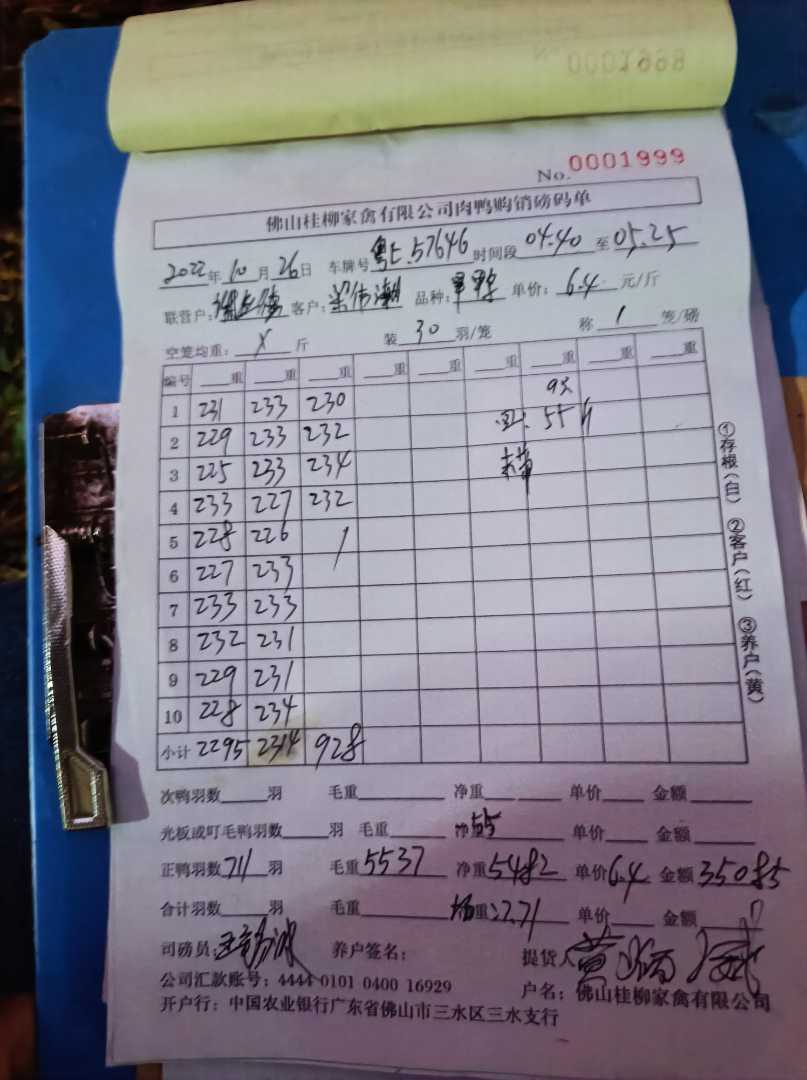 0001999
No.0001999
佛山桂柳家禽有限公司肉鸭购销磅码单
2022年10月26日 车牌号粤E.57646 时间段04.40至05.25
联营户: 客户:梁伟潮 品种: 单价:6.4元/斤
空笼均重:X斤 装30羽/笼 称1笼/磅
编号 重 重 重 重 重 重 重 重 重
1 231 233 230
2 229 233 232 55
3 225 233 234
4 233 227 232
5 228 226 /
6 227 233
7 233 233
8 232 231
9 229 231
10 228 234
小计 2295 2314 928
①存根(白) ②客户(红) ③养户(黄)
次鸭羽数 羽 毛重 净重 单价 金额
光板或叮毛鸭羽数 羽 毛重 净重55 单价 金额
正鸭羽数711羽 毛重5537 净重5482 单价6.4 金额35085
合计羽数 羽 毛重 均重:7.71 单价 金额
司磅员: 养户签名: 提货人
公司汇款账号:4444 0101 0400 16929 户名:佛山桂柳家禽有限公司
开户行:中国农业银行广东省佛山市三水区三水支行